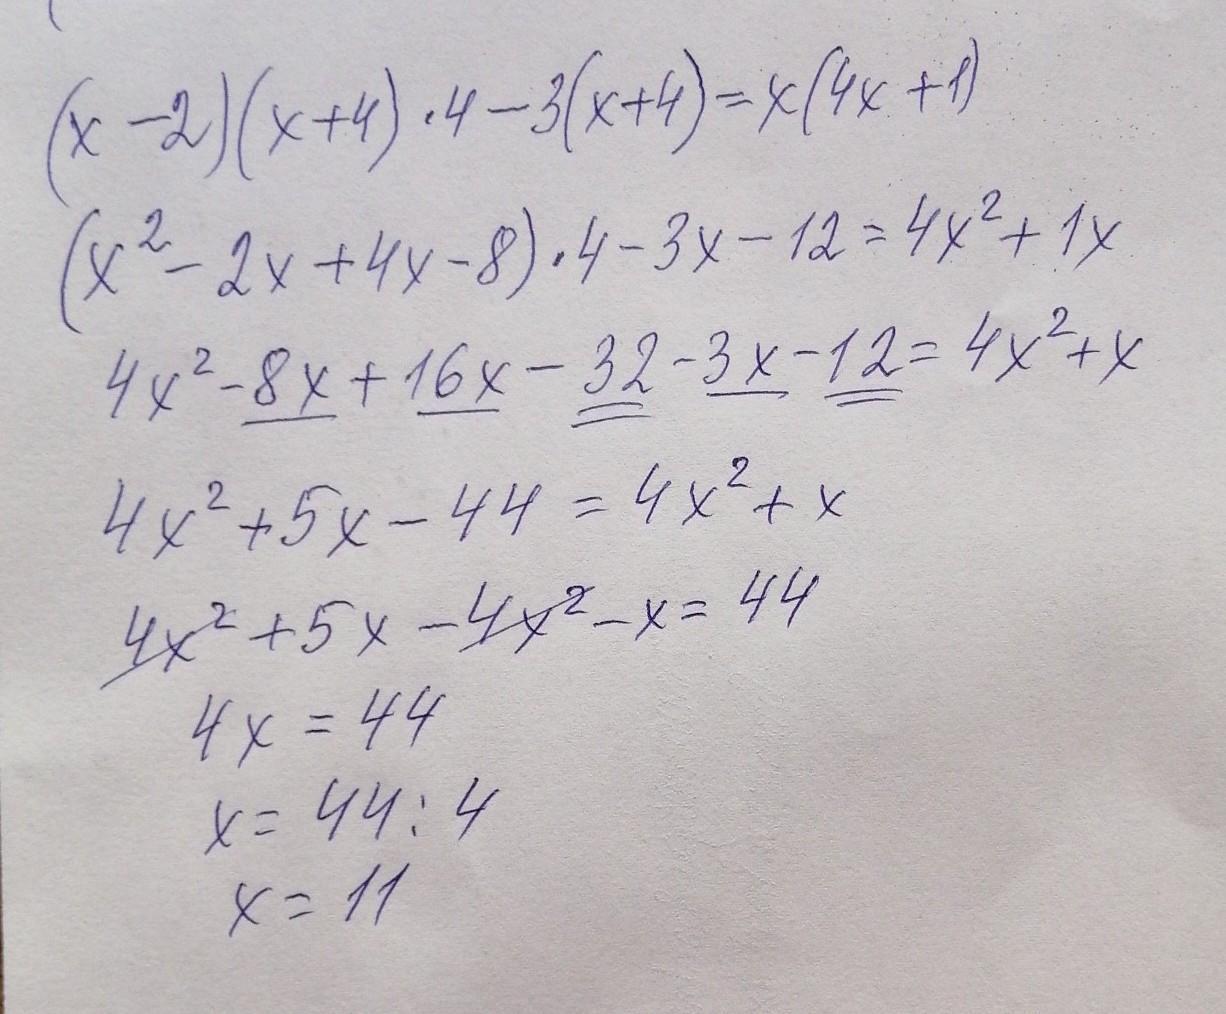 (x-2)(x+4)·4-3(x+4)=x(4x+1)
(x²-2x+4x-8)·4-3x-12=4x²+1x
4x²-8x+16x-32-3x-12=4x²+x
4x²+5x-44=4x²+x
4x²+5x-4x²-x=44
4x=44
x=44:4
x=11